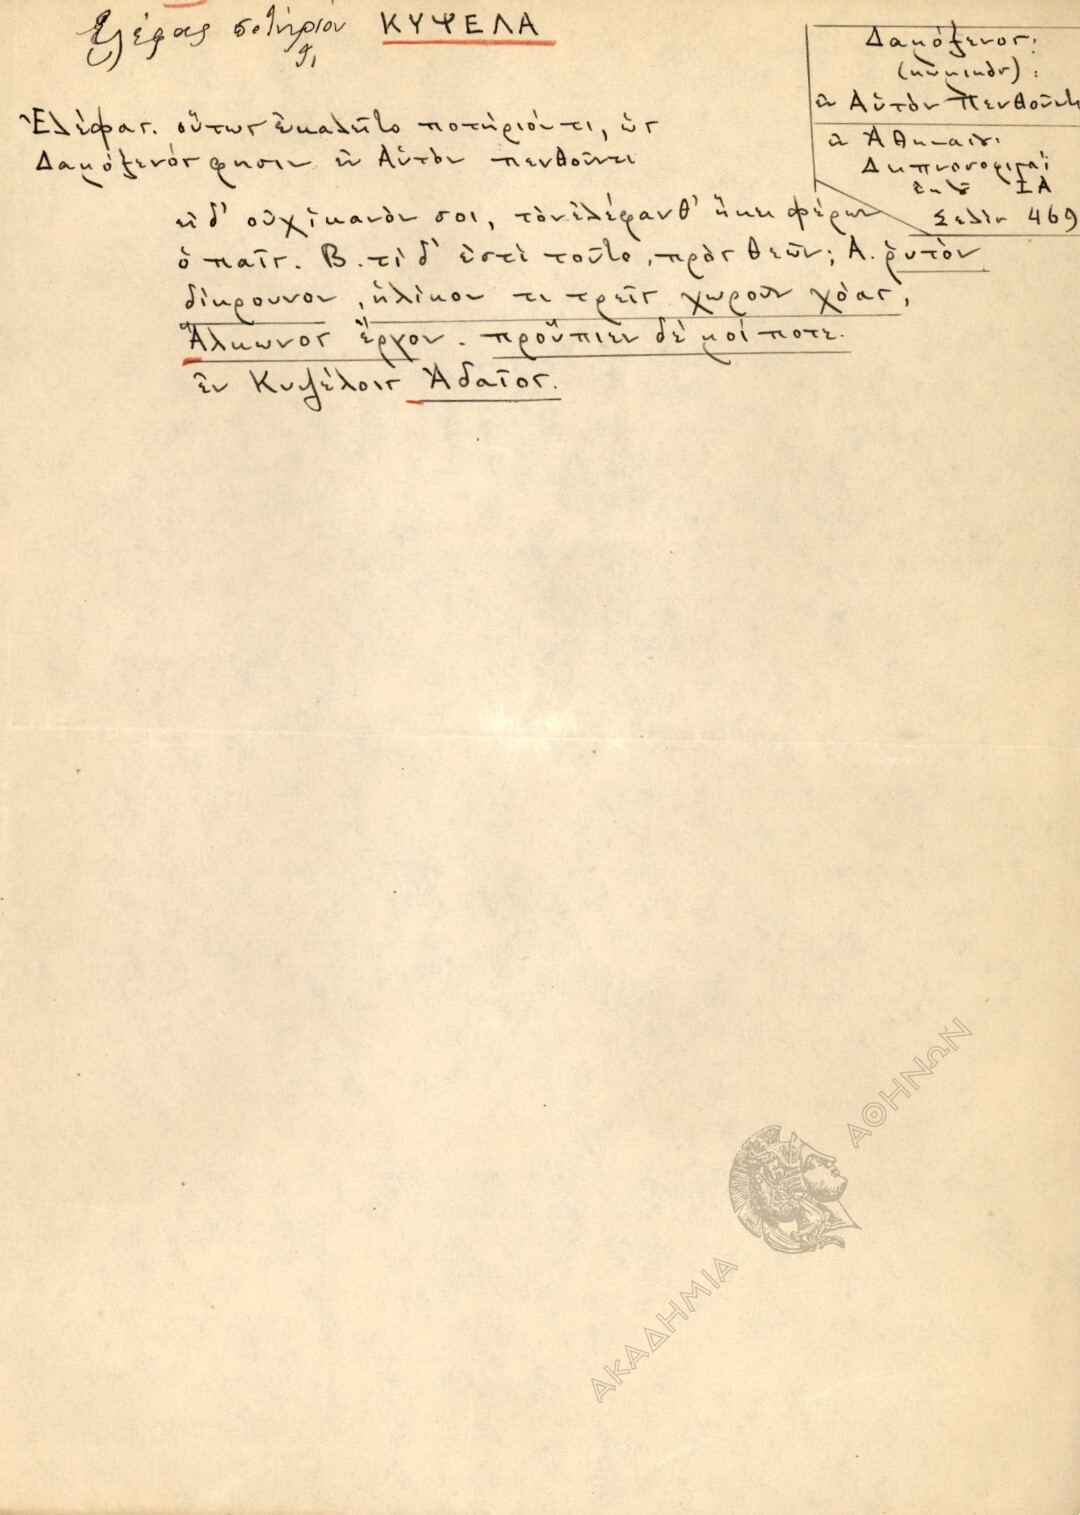 Ἐλέφας ποτήριόν ΚΥΨΕΛΑ
τι
Δαμόξενος:
(κωμικὸν):
ἐν Αὑτὸν Πενθοῦντι
ἐν Ἀθηναίου
Δειπνοσοφισταί
ΙΑ
Σελὶς 469
Ἐλέφας. οὕτως ἐκαλεῖτο ποτήριόν τι, ὡς
Δαμόξενός φησιν ἐν Αὑτὸν πενθοῦντι
εἰ δ' οὐχ ἱκανὸν σοι, τὸν ἐλέφανθ' ἥκει φέρων
ὁ παῖς. Β. τί δ' ἐστὶ τοῦτο, πρὸς θεῶν; Α. ῥυτὸν
δίκρουνον, ἡλίκον τι τρεῖς χωροῦν χόας,
Ἄλκωνος ἔργον. προὔπιεν δέ μοί ποτε.
ἐν Κυψέλοις Ἀδαῖος.
ΑΚΑΔΗΜΙΑ ΑΘΗΝΩΝ